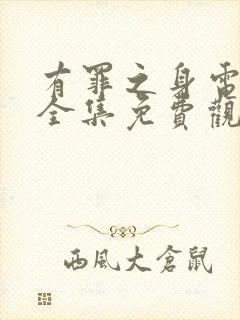 有罪之身電
全集免費觀
西風大倉鼠